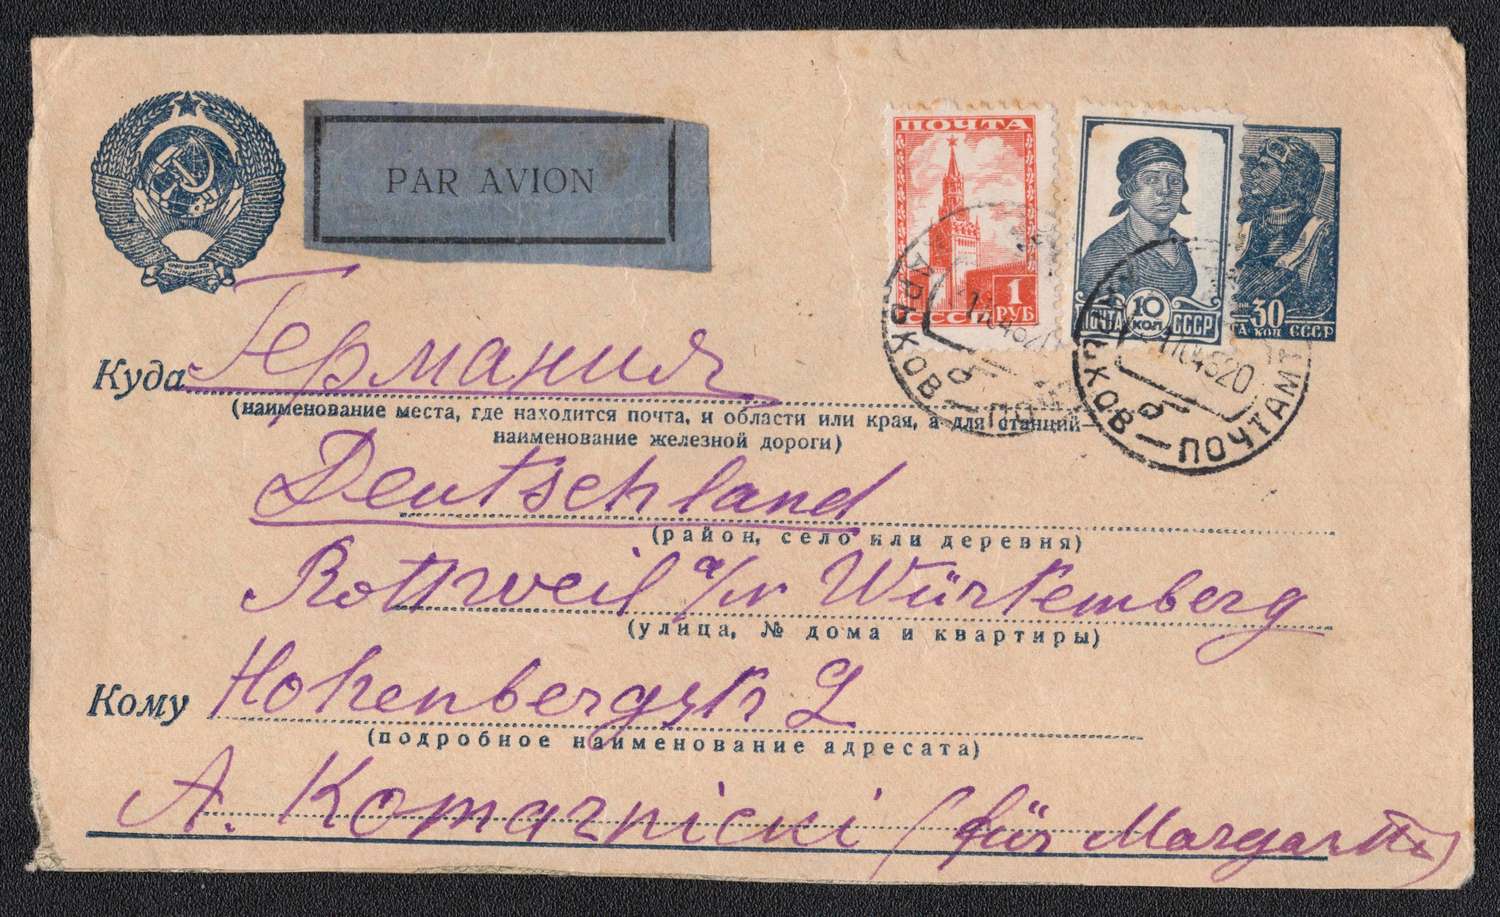 PAR AVION
ПОЧТА
1
РУБ
СССР
10
КОП
ПОЧТА СССР
30
КОП СССР
ХАРЬКОВ — ПОЧТАМТ
б
Германия
Куда
(наименование места, где находится почта, и области или края, а для станций—
наименование железной дороги)
Deutschland
(район, село или деревня)
Rottweil a/N Würtemberg
(улица, № дома и квартиры)
Кому
Hohenbergstr 2
(подробное наименование адресата)
A. Komarnicki (für